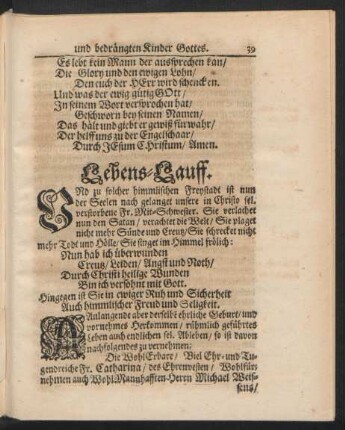 und bedrängten Kinder Gottes. 39
Es lebt kein Mann der aussprechen kan/
Die Glory und den ewigen Lohn/
Den euch der HErr wird schencken.
Und was der ewig gütig GOtt/
In seinem Wort versprochen hat/
Geschworn bey seinen Namen/
Das hält und giebt er gewiß fürwahr/
Der helff uns zu der Engelschaar/
Durch JEsum CHristum/ Amen.
Lebens-Lauff.
UNd zu solcher himmlischen Freystadt ist nun
der Seelen nach gelanget unsere in Christo sel.
verstorbene Fr. Mit-Schwester. Sie verlachet
nun den Satan/ verachtet die Welt/ Sie plaget
nicht mehr Sünde und Creutz/ Sie schrecket nicht
mehr Todt und Hölle/ Sie singet im Himmel frölich:
Nun hab ich überwunden
Creutz/ Leiden/ Angst und Noth/
Durch Christi heilige Wunden
Bin ich versöhnt mit Gott.
Hingegen ist Sie in ewiger Ruh und Sicherheit
Auch himmlischer Freud und Seligkeit.
Anlangende aber derselbē ehrliche Geburt/ und
vornehmes Herkommen/ rühmlich geführtes
Leben auch endlichen sel. Ableben/ so ist davon
nachfolgendes zu vernehmen:
Die Wohl Erbare/ Viel Ehr- und Tu-
gendreiche Fr. Catharina/ des Ehrnvesten/ Wohlfür-
nehmen auch Wohl-Mannhafften Herrn Michael Weis-
sens/